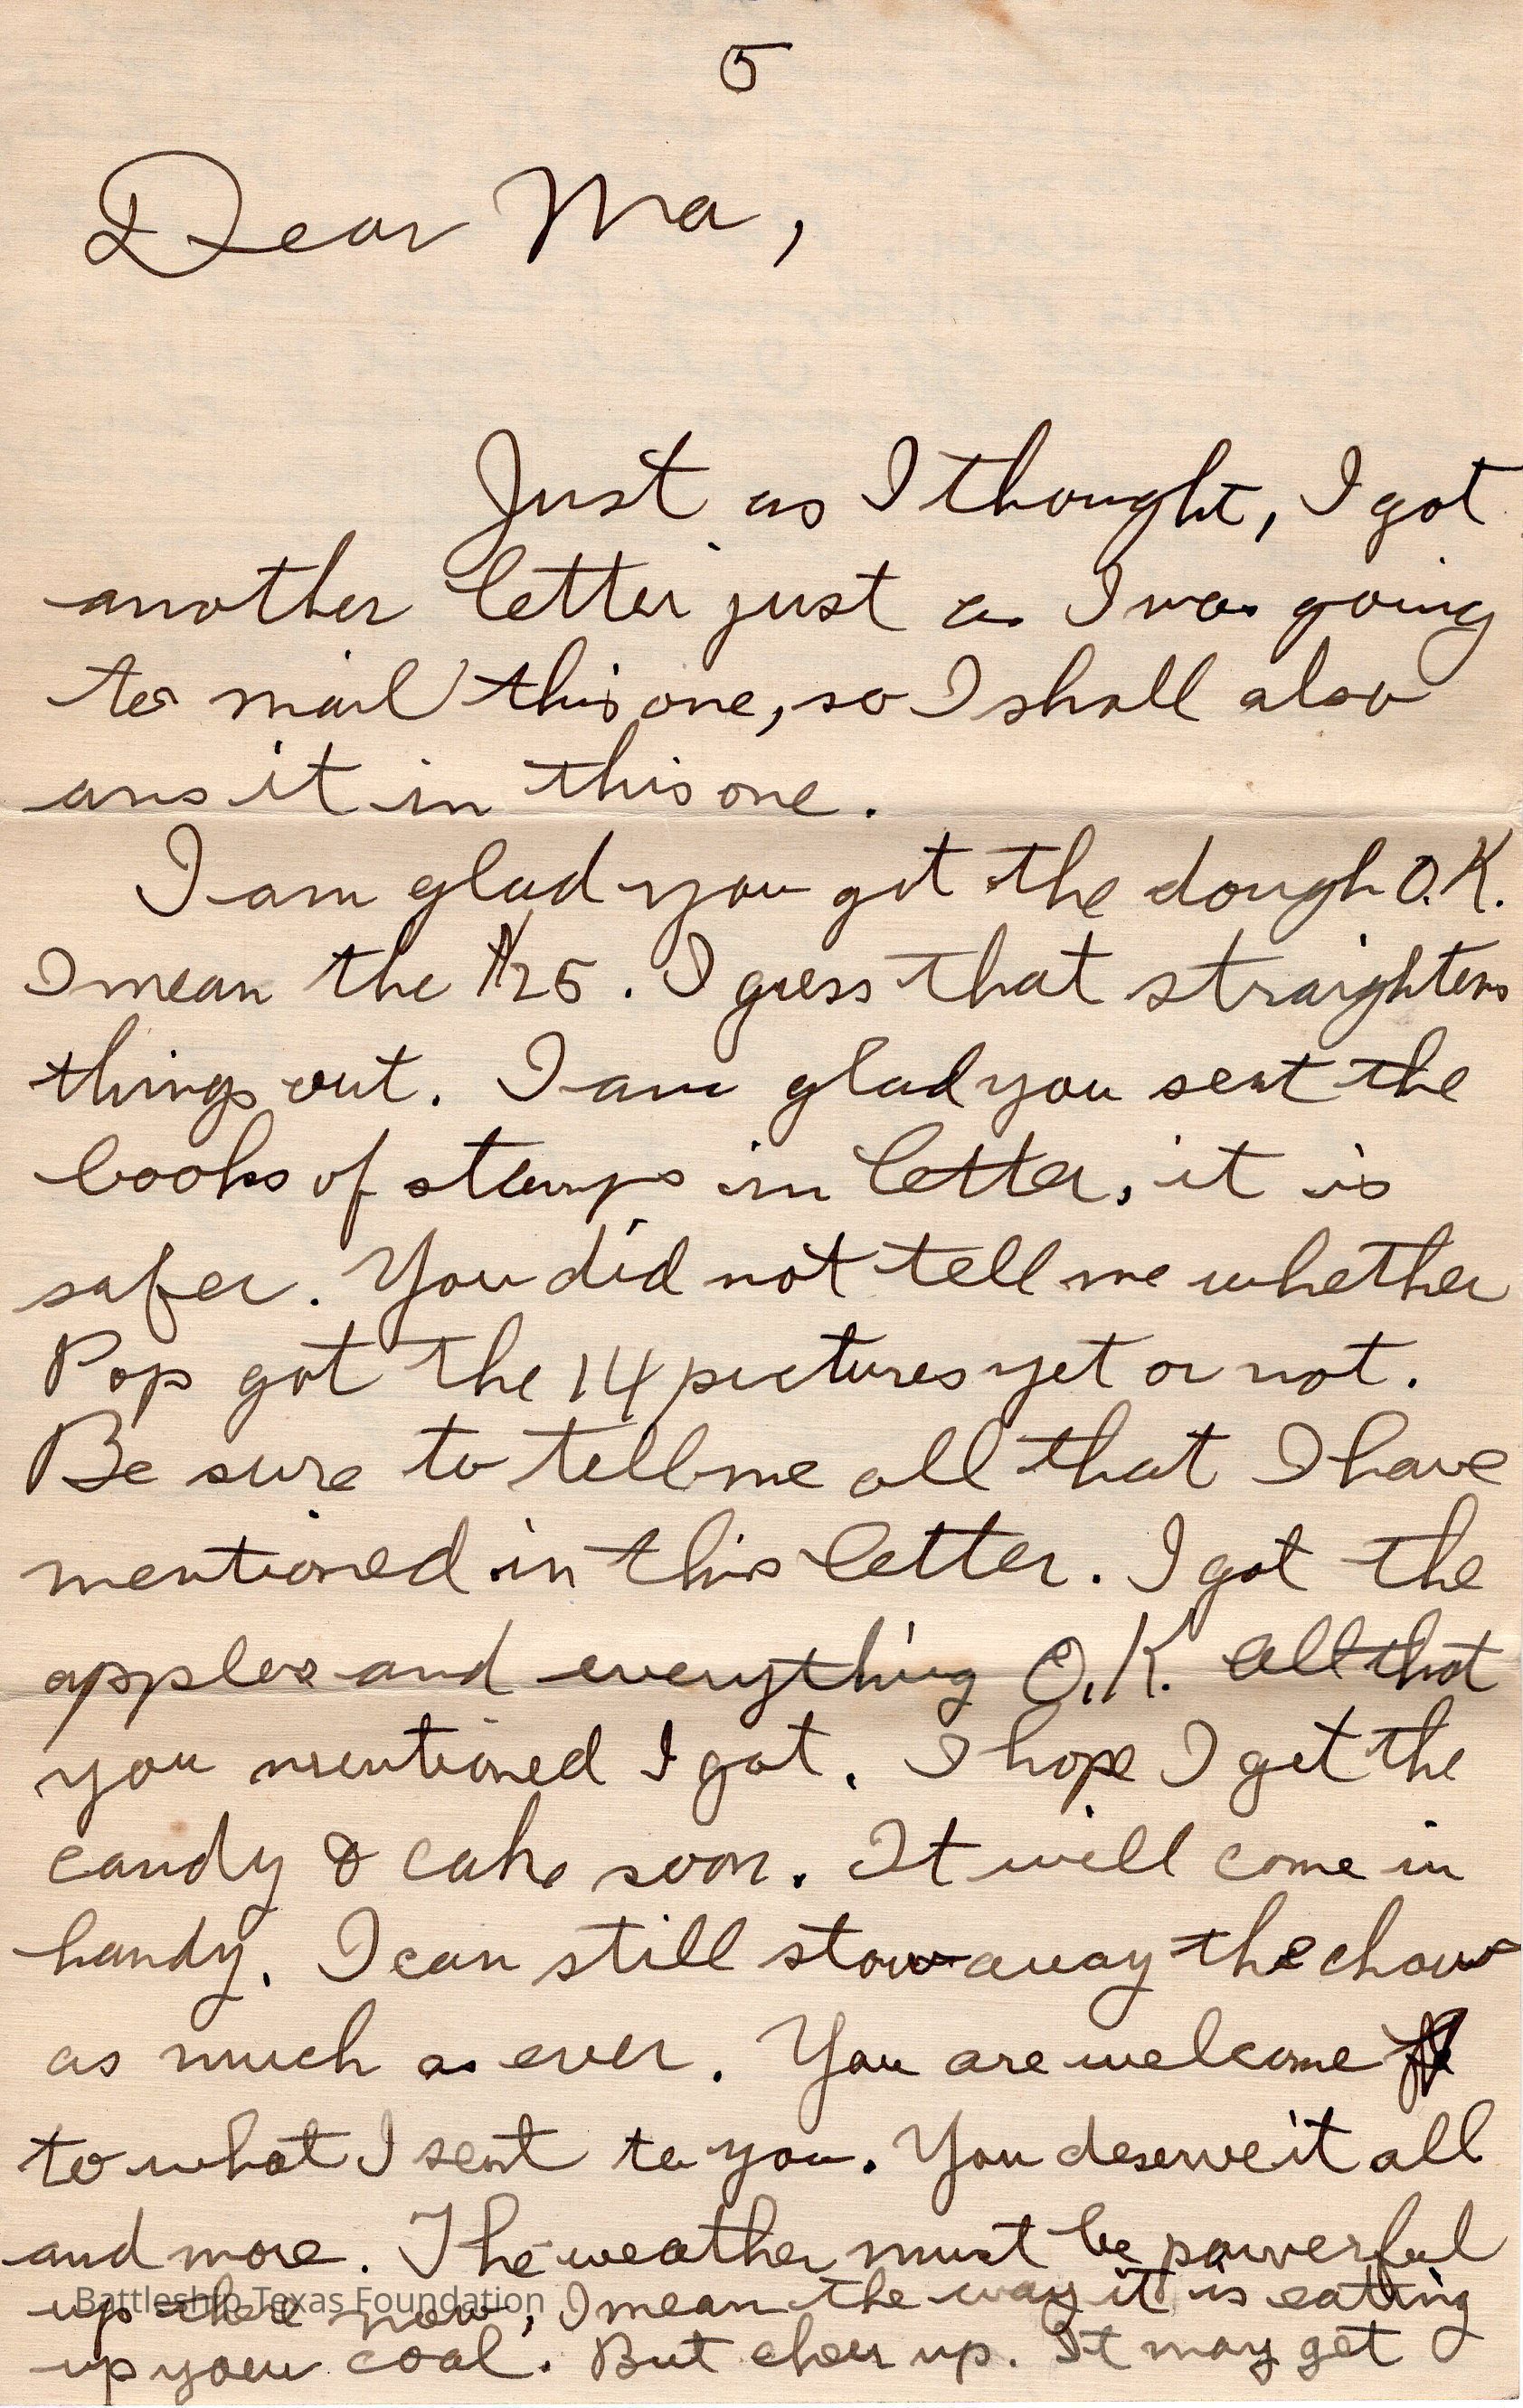 5
Dear Ma,
Just as I thought, I got
another letter just as I was going
to mail this one, so I shall also
ans it in this one.
I am glad you got the dough O.K.
I mean the $25. I guess that straightens
things out. I am glad you sent the
books of stamps in letter, it is
safer. You did not tell me whether
Pop got the 14 pictures yet or not.
Be sure to tell me all that I have
mentioned in this letter. I got the
apples and everything O.K. All that
you mentioned I got. I hope I get the
candy & cake soon. It will come in
handy. I can still stow away the chow
as much as ever. You are welcome
to what I sent to you. You deserve it all
and more. The weather must be powerful
up there now, I mean the way it is eating
Battleship Texas Foundation
up your coal. But cheer up. It may get